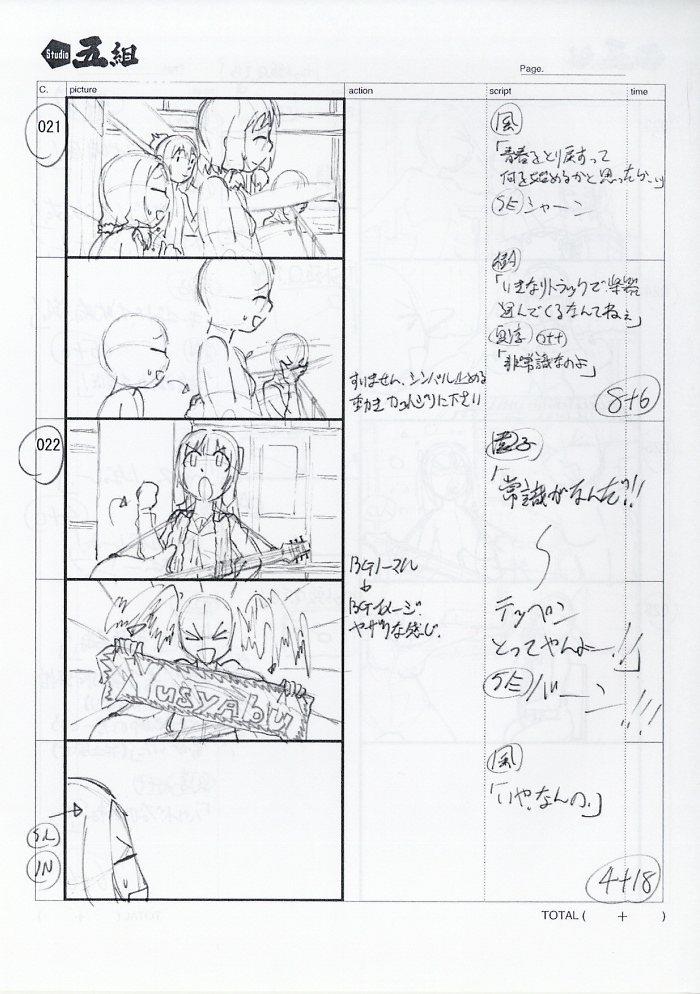 Studio 五組
Page.
C. picture action script time
021
風
「青春をとり戻すって
何を始めるかと思ったら…」
SE シャーン
「いきなりトラックで楽器
運んでくるなんてねぇ」
off
「非常識なのよ」
すいません、シンバル止める
動きカット尻に下さい
8+6
022
園子
「常識がなんだ!!
BGノーマル
↓
BGイメージ
テッペン
とってやんよー!!」
SE バーン!!!
Yusyabu
風
「いや、なんの。」
SL
IN
4+18
TOTAL ( + )